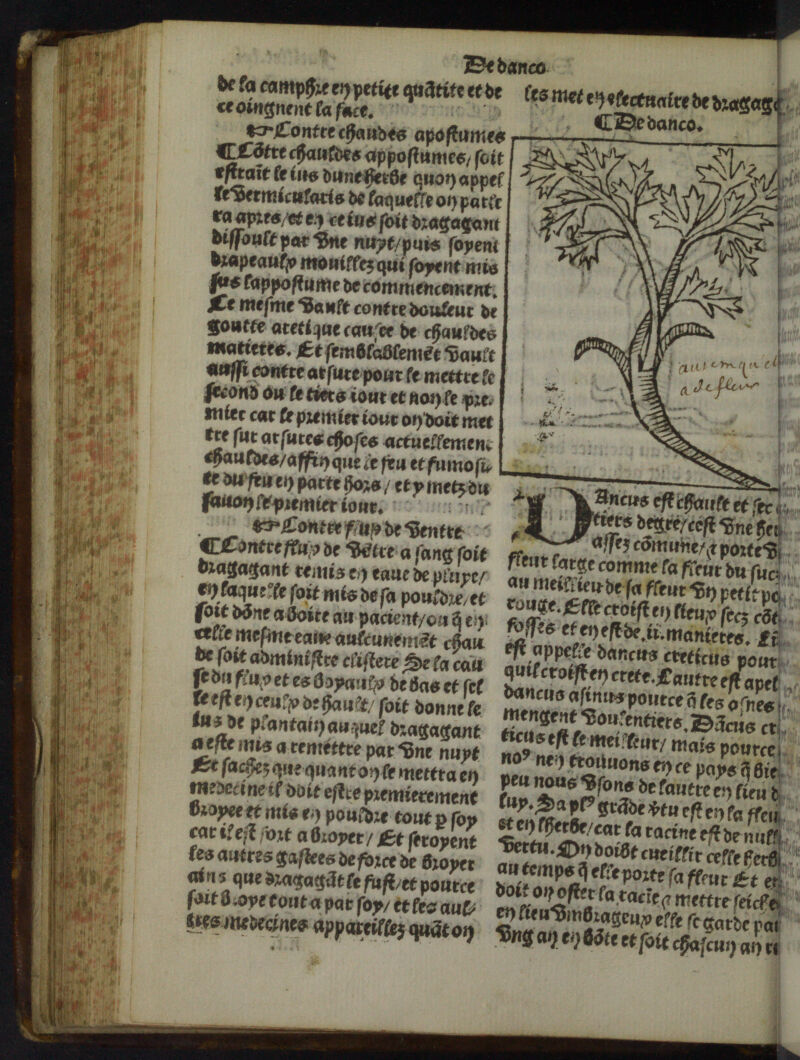 De danco
de la camphre en petite quãtite et de
ce oingnent la face.
☞Contre chaudes apostumes
¶Cõtre chauldes appostumes/ soit
estrait le ius dune herbe quon appel
le vermicularis de laquelle on parle
ra apres/et en ce ius soit dragagant
dissoult par vne nuyt/puis soyent
drapeaulx mouillez qui soyent mis
sus lappostume de commencement.
Ce mesme vault contre douleur de
goutte aretique causee de chauldes
matieres. Et semblablemẽt vault
aussi contre arsure pour le mettre le
second ou le tiers iour et non le pre-
mier car le premier iour on doit met
tre sur arsures choses actuellement
chauldes/affin que le feu et fumosi
te du feu en parte hors / et y metz du
sauon le premier iour.
☞Contre flux de ventre
¶Contre flux de vẽtre a sang soit
dragagant remis en eaue de pluye/
en laquelle soit mis de sa pouldre/et
soit dõne a boire au pacient/ou q̃ en
celle mesme eaue aulcunemẽt chau
de soit administre clistere Se la cau
se du flux et es boyaulx de bas et sel
le est en ceulx de hault/ soit donne le
ius de plantain auquel dragagant
a este mis a remettre par vne nuyt
Et sachez que quant on le mettra en
medecine il doit estre premierement
broyee et mis en pouldre tout p soy
car il est fort a broyer / Et seroyent
les autres gastees de force de broyer
ains que dragagãt le fust/et pource
soit broye tout a par soy/ et les aul-
tres medecines appareillez quãt on
les met en electuaire de dragaga
¶De danco.
aucun qu el
a de fleur
DAncus est chault et sec
tiers degre/cest vne her
assez cõmune/⁊ porte v
fleur large comme la fleur du suc
au meillieu de sa fleur vn petit po
rouge. Elle croist en lieux secz cõt
fosses et en est de .ii. manieres. Li
est appelle dancus creticus pour
quil croist en crete. Lautre est apel
dancus asinus pource q̃ les asnes
mengent voulentiers. Dãcus cr
ticus est le meilleur/ mais pource
noꝰ nen trouuons en ce pays q̃ bie
peu nous vsons de lautre en lieu d
luy. Sa plꝰ grãde v̾tu est en sa fleu
et en lherbe/car la racine est de null
vertu. On doibt cueillir celle herb
au temps q̃ elle porte sa fleur Et et
doit on oster la racie ⁊ mettre seiche
en lieu vmbrageux elle se garde par
vng an en bõte et soit chascun an re